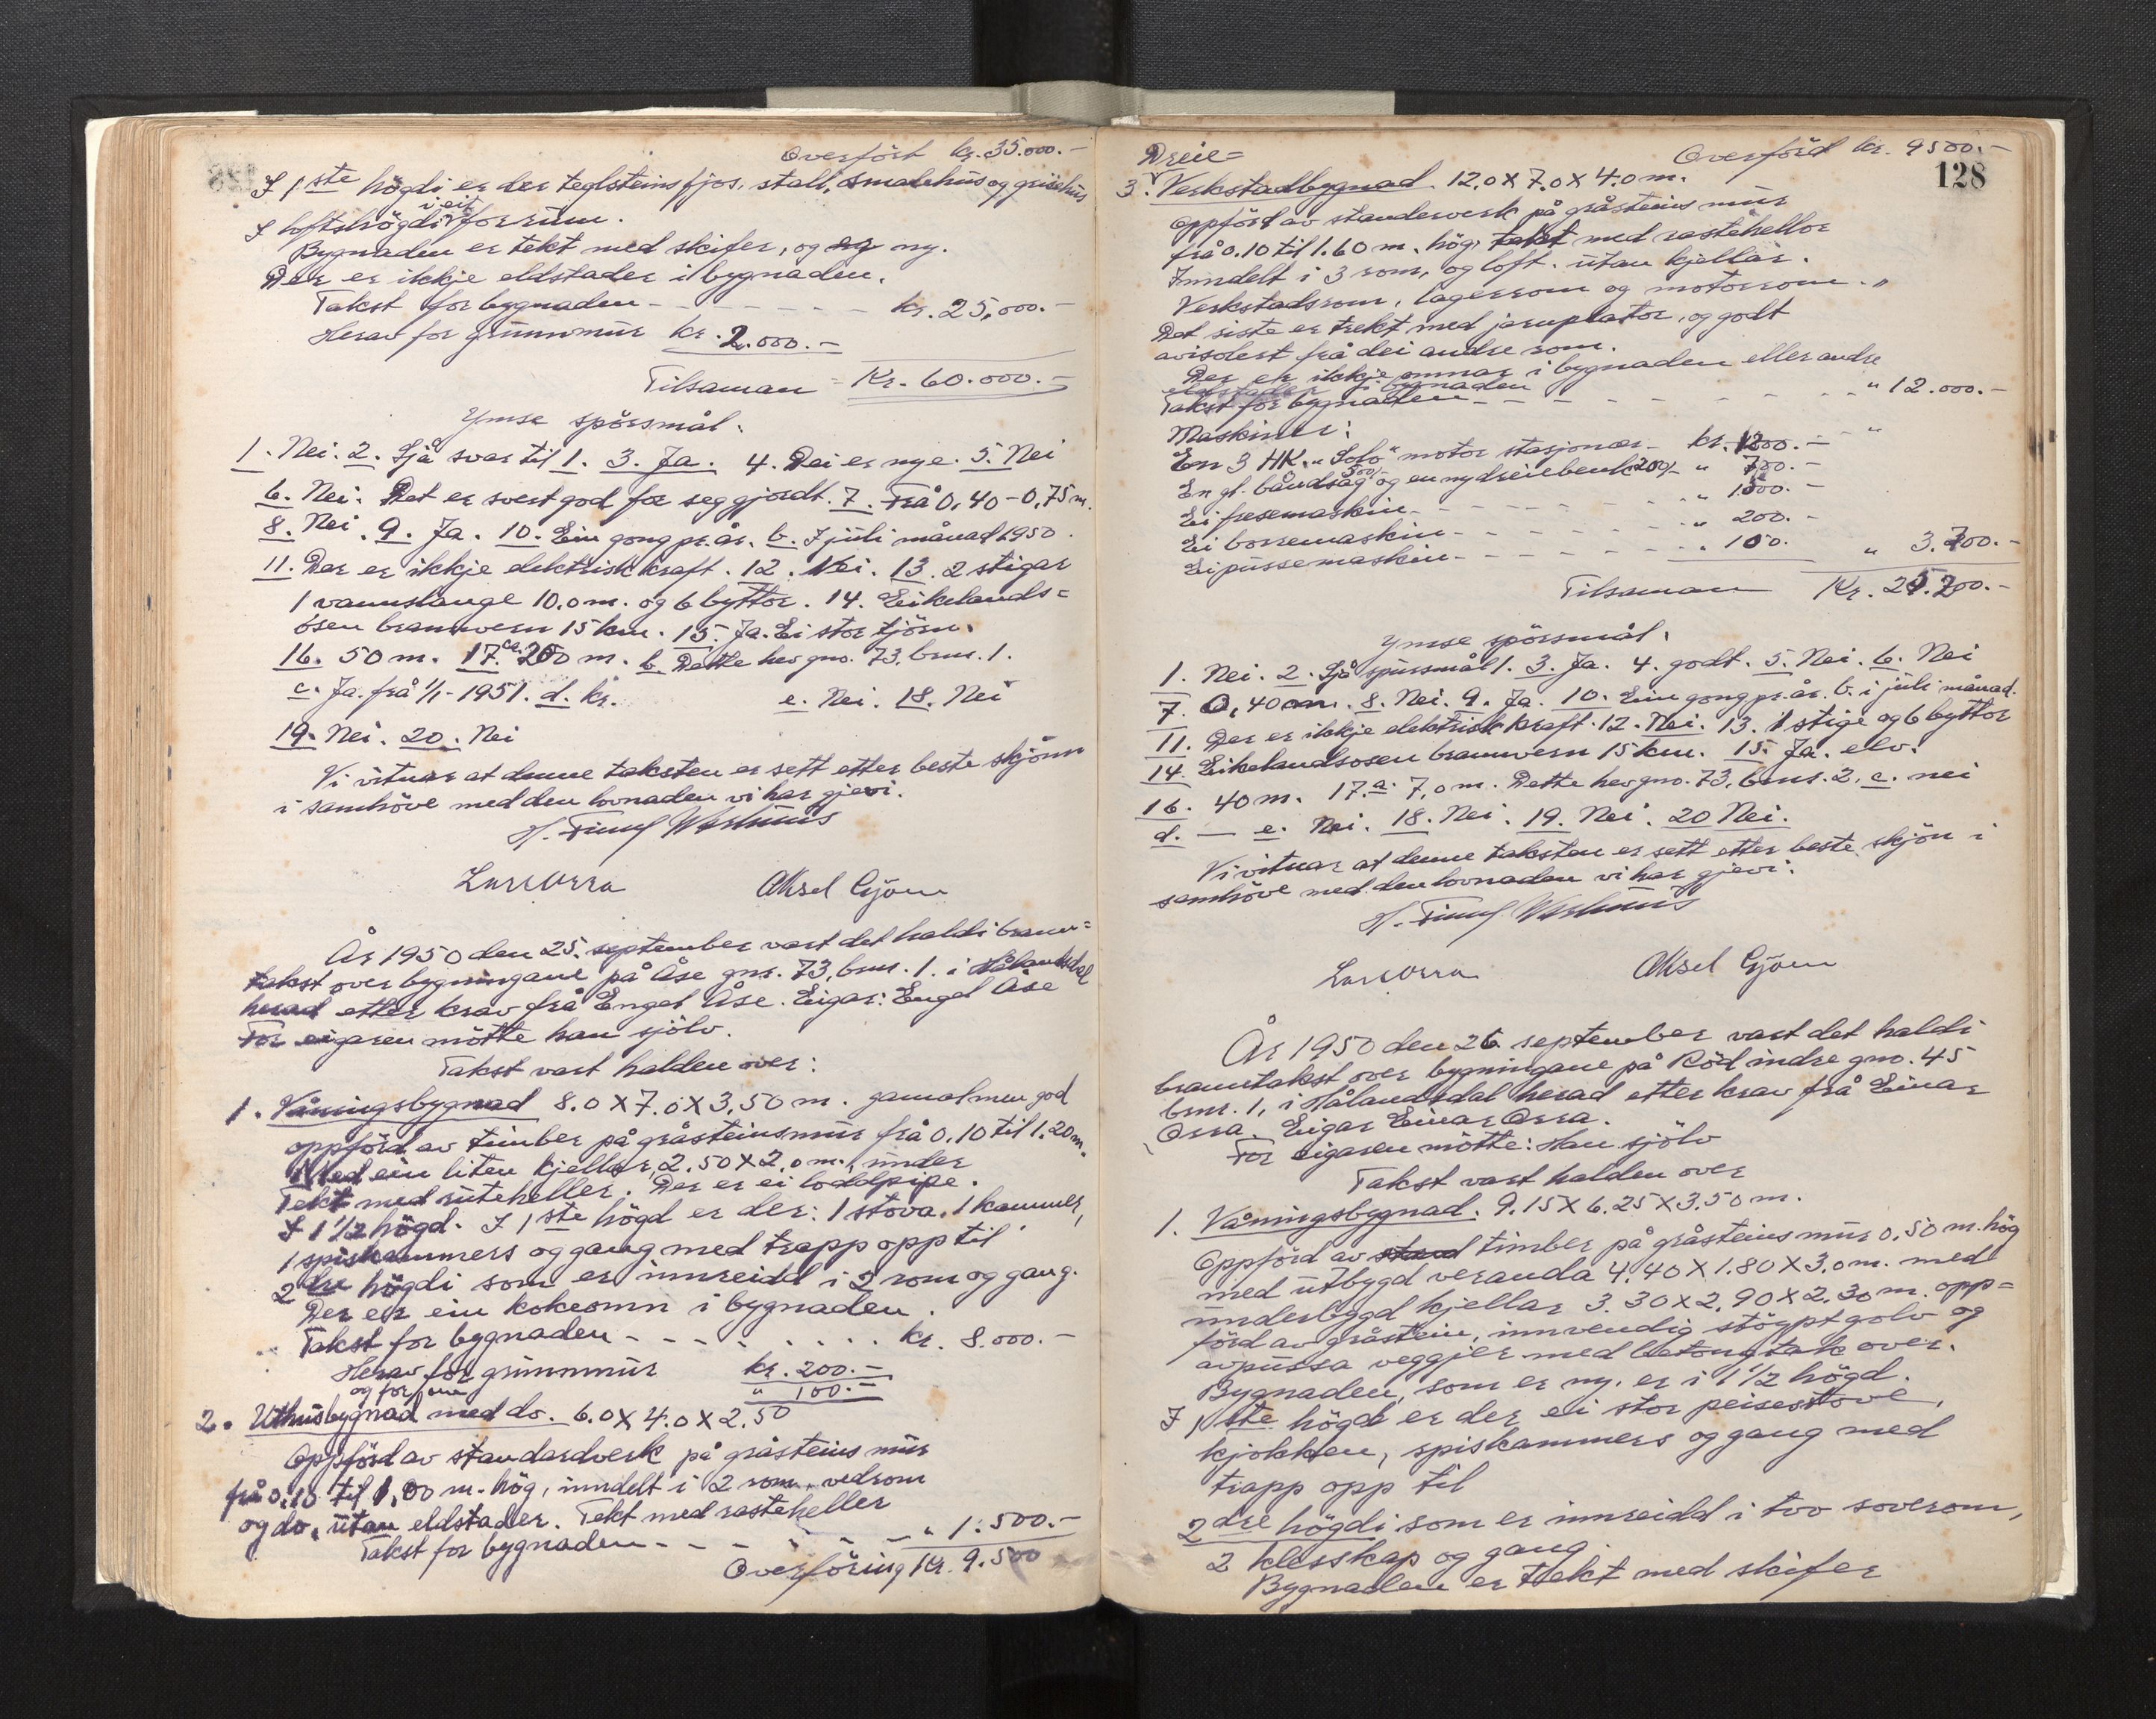 Overfört kr. 35.000.-
I 1ste högdi er der teglsteins fjos, stall, smalehus og grisehus
I loftshögdi i eit forrum.
Bygnaden er tekt med skifer, og ny.
Der er ikkje eldstader i bygnaden.
Takst for bygnaden - - - - - - kr. 25,000.-
Herav for grunnmur kr. 2.000.-
Tilsaman = Kr. 60.000.-
Ymse spörsmål.
1. Nei. 2. Sjå svar til 1. 3. Ja. 4. Dei er nye. 5. Nei
6. Nei. Det er svert god for seggjordt. 7. Frå 0,40 - 0,75 m.
8. Nei. 9. Ja. 10. Ein gong pr. år. b. I juli månad 1950.
11. Der er ikkje elektrisk kraft. 12. Nei. 13. 2 stigar
1 vannslange 10.0 m. og 6 byttor. 14. Eikelands=
osen brannvern 15 km. 15. Ja. Ei stor tjörn.
16. 50 m. 17. ca. 200 m. b. Dette hev gno. 73, bnr. 1.
c. Ja. frå 1/1 - 1951. d. kr. e. Nei. 18. Nei
19. Nei. 20. Nei
Vi vitnar at denne taksten er sett etter beste skjönn
i samhöve med den lovnaden vi har gjevi.
Aksel Gjøen
År 1950 den 25. september vart det haldi brann=
takst over bygningane på Åse gnr. 73, bnr. 1. i Hålandsdal
herad etter krav frå Engel Åse. Eigar: Engel Åse
For eigaren mötte han sjölv.
Takst vart halden over:
1. Våningsbygnad 8.0 X 7.0 X 3,50 m. gamal men god
oppförd av timber på gråsteinsmur frå 0.10 til 1.20 m.
Med ein liten kjellar, 2.50 X 2,0 m., under
Tekt med ruteheller. Der er ei loddpipe.
I 1 1/2 högd. I 1ste högd er der: 1 stova, 1 kammer,
1 spiskammers og gang med trapp opp til
2dre högdi som er innreidd i 2 rom og gang.
Der er ein kokeomn i bygnaden.
Takst for bygnaden - - - - - - kr. 8.000.-
Herav for grunnmur kr. 200.-
og for omn " 100.-
2. Uthusbygnad med do. 6.0 X 4.0 X 2.50
Oppförd av standardverk på gråsteins mur
frå 0.10 til 1,00 m. hög, inndelt i 2 rom, vedrom
og do, utan eldstader. Tekt med rasteheller
Takst for bygnaden - - - - - " 1.500.-
Overföring Kr. 9.500
Overförd kr. 9500.-
128
Dreie=
3. Verkstadbygnad 12.0 X 7.0 X 4.0 m.
Oppförd av standerverk på gråsteins mur
frå 0.10 til 1.60 m. hög, tekt med rastehellor
Inndelt i 3 rom, og loft. utan kjellar.
Verkstadsrom, lagerrom og motorrom.
Det siste er trekt med jernplator, og godt
avisolert frå dei andre rom.
Der er ikkje omnar i bygnaden eller andre
eldstader i bygnaden
Takst for bygnaden - - - - - - " 12.000.-
Maskiner:
En 3 HK. "Solo" motor stasjonær - kr. 1200.-
En gl. båndsag 500/- og en ny dreiebenk 200/- " 700.-
Ei fresemaskin - - - - " 1500.-
Ei borremaskin - - - - " 200.-
Ei pussemaskin - - - - " 100. " 3.700.-
Tilsaman Kr. 25.200.-
Ymse spörsmål.
1. Nei. 2. Sjå spursmål 1. 3. Ja. 4. godt. 5. Nei. 6. Nei
7. 0,40 cm. 8. Nei. 9. Ja. 10. Ein gong pr. år. b. i juli månad.
11. Der er ikkje elektrisk kraft. 12. Nei. 13. 1 stige og 6 byttor
14. Eikelandsosen brannvern 15 km. 15. Ja. elv.
16. 40 m. 17. a. 7,0 m. Dette hev gno. 73, bnr. 2. c. nei
d. - e. Nei. 18. Nei. 19. Nei. 20 Nei.
Vi vitnar at denne taksten er sett etter beste skjön i
samhöve med den lovnaden vi har gjevi.
Aksel Gjøen
År 1950 den 26 september vart det haldi
branntakst over bygningane på Röd indre gno. 45
bnr. 1, i Hålandsdal herad etter krav frå Einar
Orra. Eigar Einar Orra.
For eigaren mötte: Han sjölv
Takst vart halden over
1. Våningsbygnad. 9.15 X 6.25 X 3.50 m.
Oppförd av timber på gråsteins mur 0.50 m. hög
med utbygd veranda 4.40 X 1.80 X 3.0 m. med
underbygd kjellar 3.30 X 2.90 X 2.30 m. opp=
förd av gråstein, innvendig stöypt golv og
avpussa veggjer med betongtak over.
Bygnaden, som er ny, er i 1 1/2 högd.
I 1ste högd er der ei stor peisestove,
kjokken, spiskammers og gang med
trapp opp til
2dre högdi som er innreidd i tvo soverom,
2 klesskap og gang.
Bygnaden er tekt med skifer